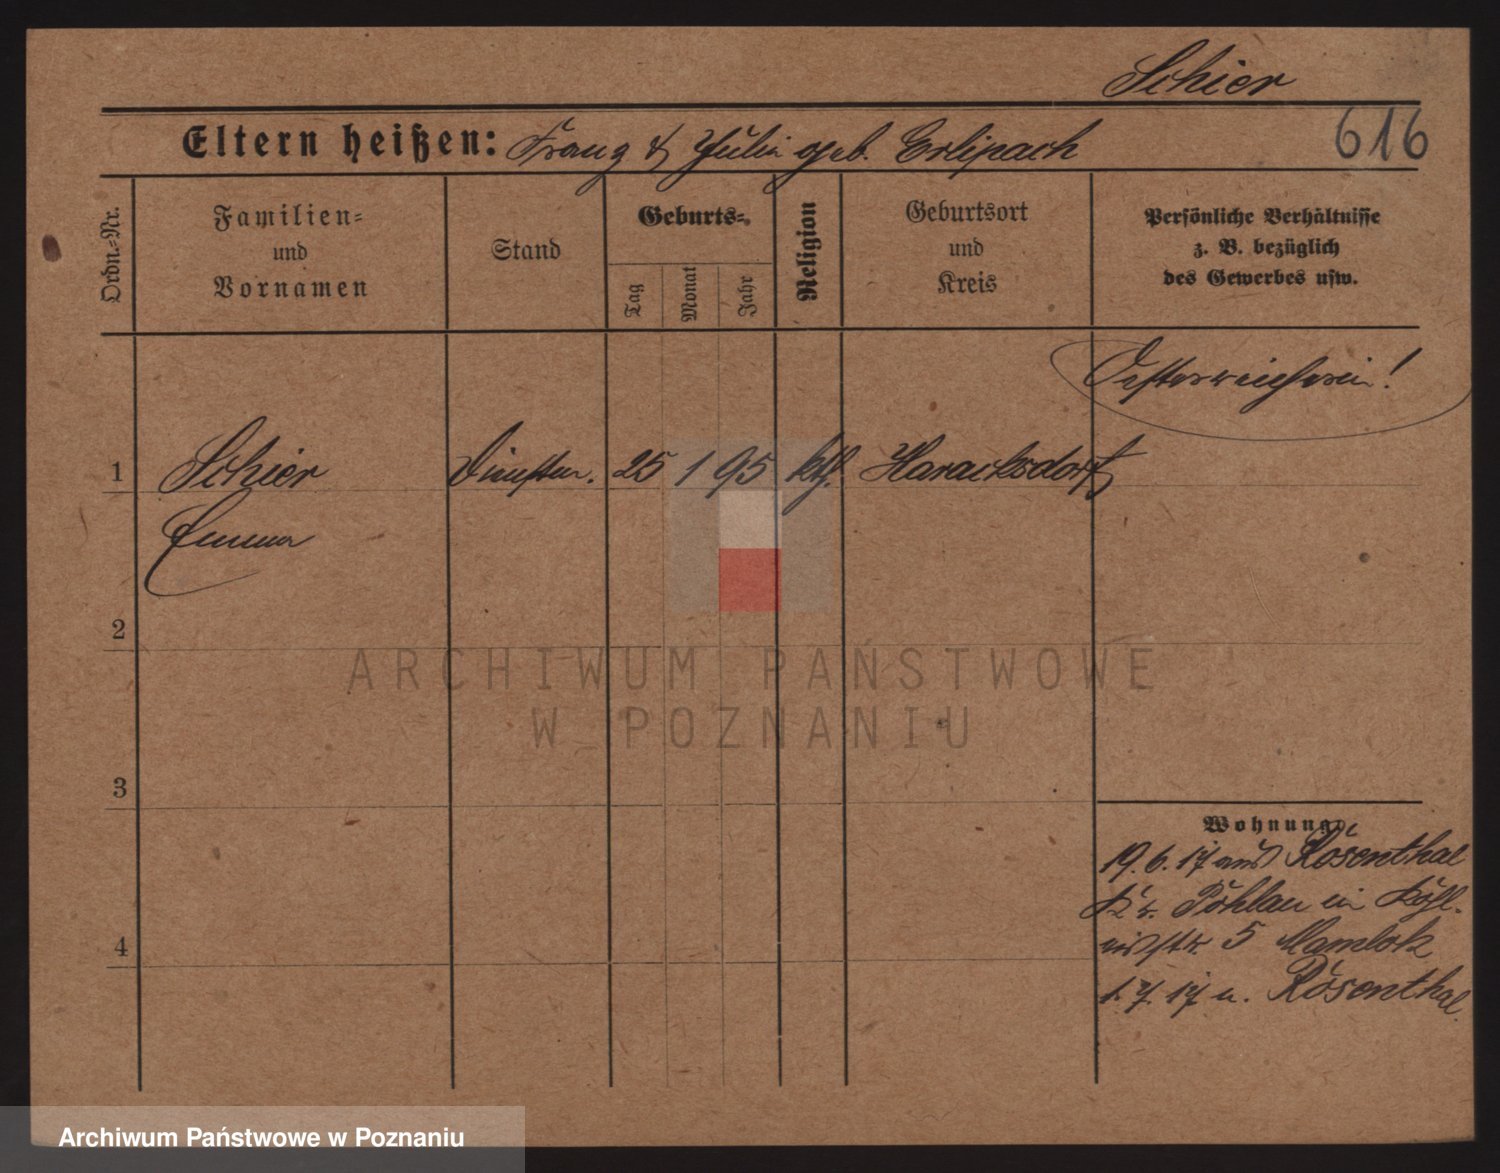 Schier
Eltern heißen: Franz & Julia geb. Erlipach
616
Ordn.-Nr.
Familien-
und
Vornamen
Stand
Geburts-
Tag
Monat
Jahr
Religion
Geburtsort
und
Kreis
Persönliche Verhältnisse
z. B. bezüglich
des Gewerbes usw.
Oesterreicherin!
1 Schier Dienstm. 25 1 95 kth. Haracksdorf
Emma
2
3
4
Wohnung
19. 6. 17 aus Rosenthal
Kr. in
str. 5 Mamlok
1. 7. 17 n. Rosenthal
ARCHIWUM PAŃSTWOWE
W POZNANIU
Archiwum Państwowe w Poznaniu